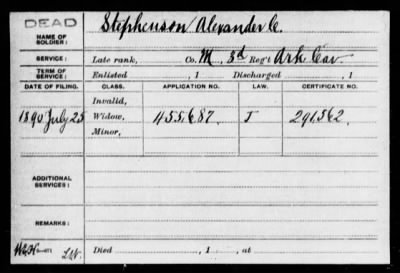 DEAD
NAME OF SOLDIER: Stephenson Alexander C.
SERVICE: Late rank, Co. M, 3d Reg't Ark Cav
TERM OF SERVICE: Enlisted , 1 Discharged , 1
DATE OF FILING. CLASS. APPLICATION NO. LAW. CERTIFICATE NO.
Invalid,
1890 July 25 Widow, 455,687. J 291,562.
Minor,
ADDITIONAL SERVICES:
REMARKS:
Died , 1 , at